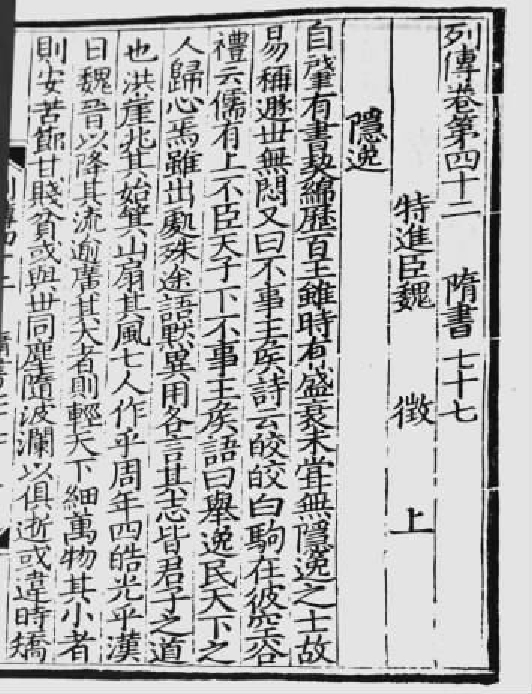 列傳卷第四十二 隋書七十七
特進臣魏 徵 上
隱逸
自肇有書契綿歷百王雖時有盛衰未嘗無隱逸之士故
易稱遯世無悶又曰不事王侯詩云皎皎白駒在彼空谷
禮云儒有上不臣天子下不事王侯語曰舉逸民天下之
人歸心焉雖出處殊途語默異用各言其志皆君子之道
也洪崖兆其始箕山扇其風七人作乎周年四皓光乎漢
日魏晉以降其流逾廣其大者則輕天下細萬物其小者
則安苦節甘賤貧或與世同塵隨波瀾以俱逝或違時矯